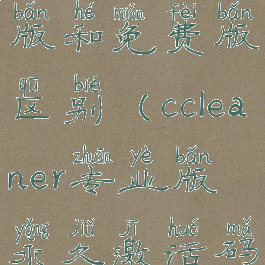 bǎn hé miǎn fèi bǎn
版和免费版
qū bié
区别(cclea
zhuān yè bǎn
ner专业版
yǒng jiǔ jī huó mǎ
永久激活码